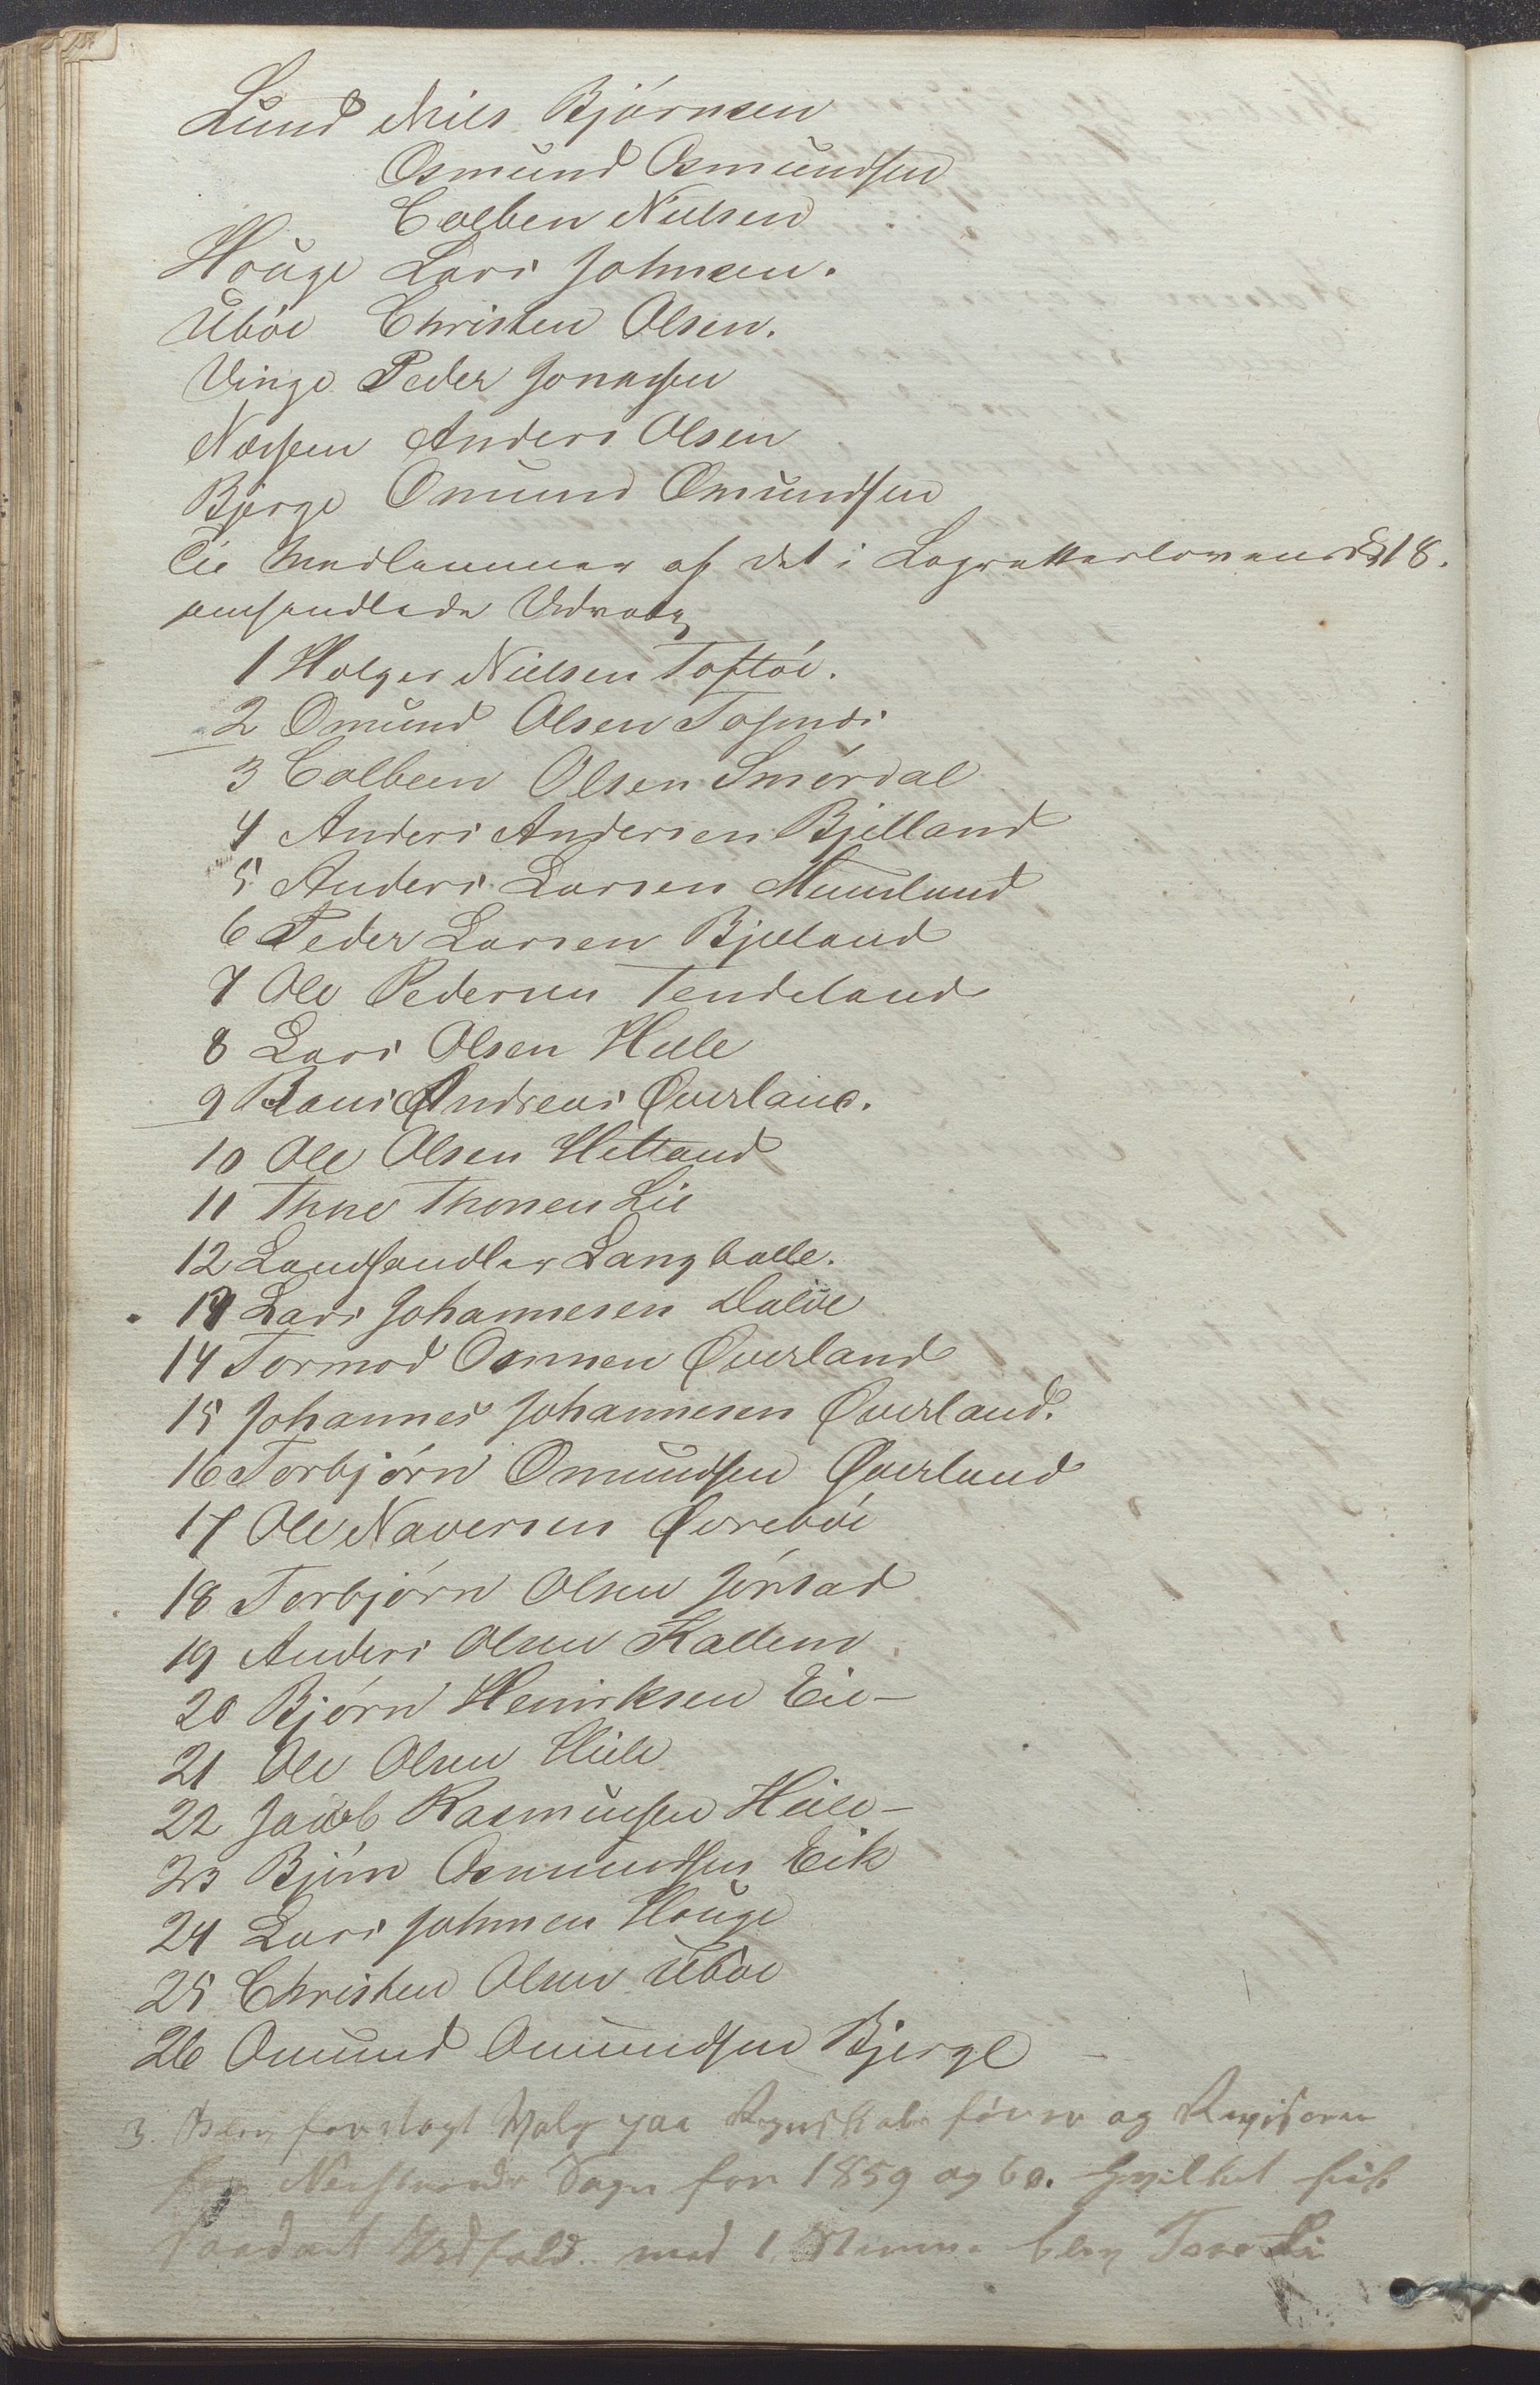 Lund Niels Bjørnsen
Osmund Osmundsen
Colben Nielsen
Houge Lars Johnsen.
Ubøe Christen Olsen.
Vinge Peder Jonassen
Næssen Anders Olsen
Bjerge Omund Omundsen
Til Medlemmer af det i Lagrettesloven § 18.
omhandlede Udvalg
1 Holger Nielsen Toftøe.
2 Omund Olsen
3 Colbeen Olsen Smørdal
4 Anders Andersen Bjelland
5 Anders Larsen
6 Peder Larsen Bjelland
7 Ole Pedersen Tendeland
8 Lars Olsen Helle
9 Andreas Øverland.
10 Ole Olsen Hetland
11 Thore Thorsen Lie
12 Landhandler Langballe.
13 Lars Johannesen Dalve
14 Tormod Osmen Øverland
15 Johannes Johannesen Øverland.
16 Torbjørn Omundsen Øverland
17 Ole Naversen Øvrebøe
18 Torbjørn Olsen Jørstad
19 Anders Olsen Kallem
20 Bjørn Henriksen Eie-
21 Ole Olsen Hele
22 Jacob Rasmussen Heile-
23 Bjørn Osmundsen Eik
24 Lars Johnsen Houge
25 Christen Olsen Ubøe
26 Omund Omundsen Bjerge
3. Blev foretagt Valg paa Regnskabsfører og Revisorer
for Nerstrands Sogn for 1859 og 60. hvilket fik
saadant Udfald. med 1 Stemme blev Tore Li